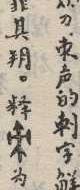 刀朿声的刺字
非其朔。释 为